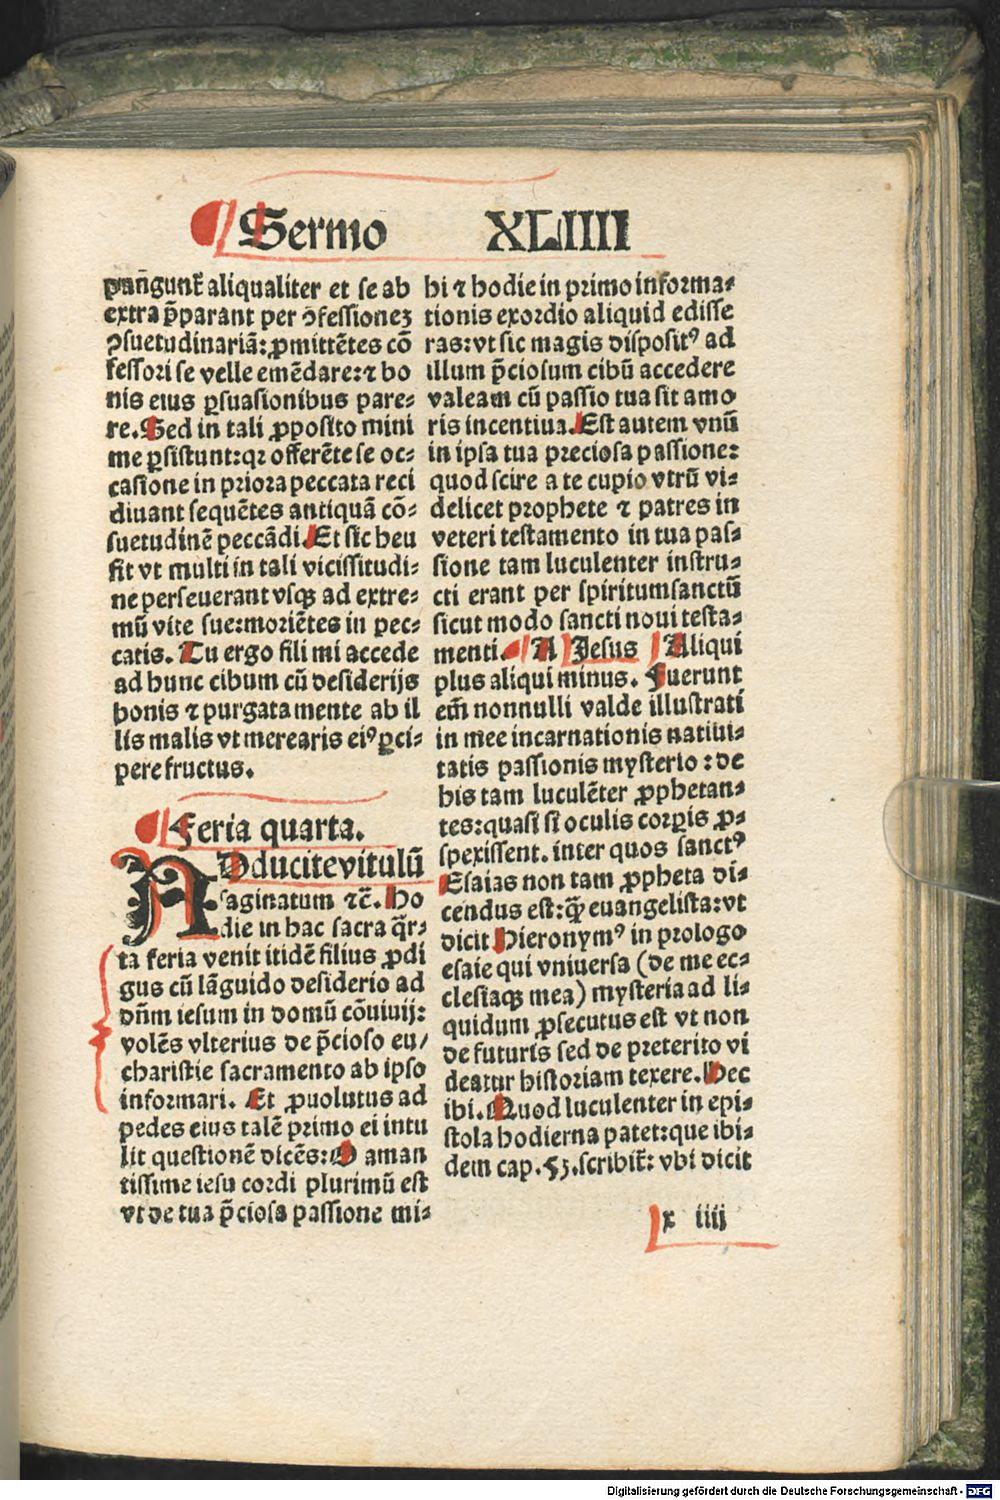 Sermo XLIIII
pungunt̄ aliqualiter et se ab
extra p̄parant per ꝯfessioneꝫ
ꝯsuetudinariā: ꝓmittētes cō
fessori se velle emēdare: ⁊ bo
nis eius ꝑsuasionibus pare⸗
re. Sed in tali ꝓposito mini
me ꝑsistunt: qꝛ offerēte se oc⸗
casione in priora peccata reci
diuant sequētes antiquā cō⸗
suetudinē peccādi. Et sic heu
fit vt multi in tali vicissitudi⸗
ne perseuerant vsqꝫ ad extre⸗
mū vite sue: moriētes in pec⸗
catis. Tu ergo fili mi accede
ad hunc cibum cū desiderijs
bonis ⁊ purgata mente ab il
lis malis vt merearis eiꝰ ꝑci⸗
pere fructus.
Feria quarta.
ADducite vitulū
saginatum ⁊c̄. Ho
die in hac sacra q̄r⸗
ta feria venit itidē filius ꝓdi
gus cū lāguido desiderio ad
dn̄m iesum in domū cōuiuij:
volēs vlterius de p̄cioso eu/
charistie sacramento ab ipso
informari. Et ꝓuolutus ad
pedes eius talē primo ei intu
lit questionē dicēs: O aman
tissime iesu cordi plurimū est
vt de tua p̄ciosa passione mi⸗
hi ⁊ hodie in primo informa⸗
tionis exordio aliquid edisse
ras: vt sic magis dispositꝰ ad
illum p̄ciosum cibū accedere
valeam cū passio tua sit amo
ris incentiua. Est autem vnū
in ipsa tua preciosa passione:
quod scire a te cupio vtrū vi⸗
delicet prophete ⁊ patres in
veteri testamento in tua pas⸗
sione tam luculenter instru⸗
cti erant per spiritumsanctū
sicut modo sancti noui testa⸗
menti. A Jesus Aliqui
plus aliqui minus. Fuerunt
em̄ nonnulli valde illustrati
in mee incarnationis natiui⸗
tatis passionis mysterio: de
his tam luculēter ꝓphetan⸗
tes: quasi si oculis corꝑis ꝓ⸗
spexissent. inter quos sanctꝰ
Esaias non tam ꝓpheta di⸗
cendus est: q̄ꝫ euangelista: vt
dicit Hieronymꝰ in prologo
esaie qui vniuersa (de me ec⸗
clesiaqꝫ mea) mysteria ad li⸗
quidum ꝓsecutus est vt non
de futuris sed de preterito vi
deatur historiam texere. Hec
ibi. Quod luculenter in epi⸗
stola hodierna patet: que ibi⸗
dem cap. 53. scribit̄: vbi dicit
x iiij
Digitalisierung gefördert durch die Deutsche Forschungsgemeinschaft - DFG